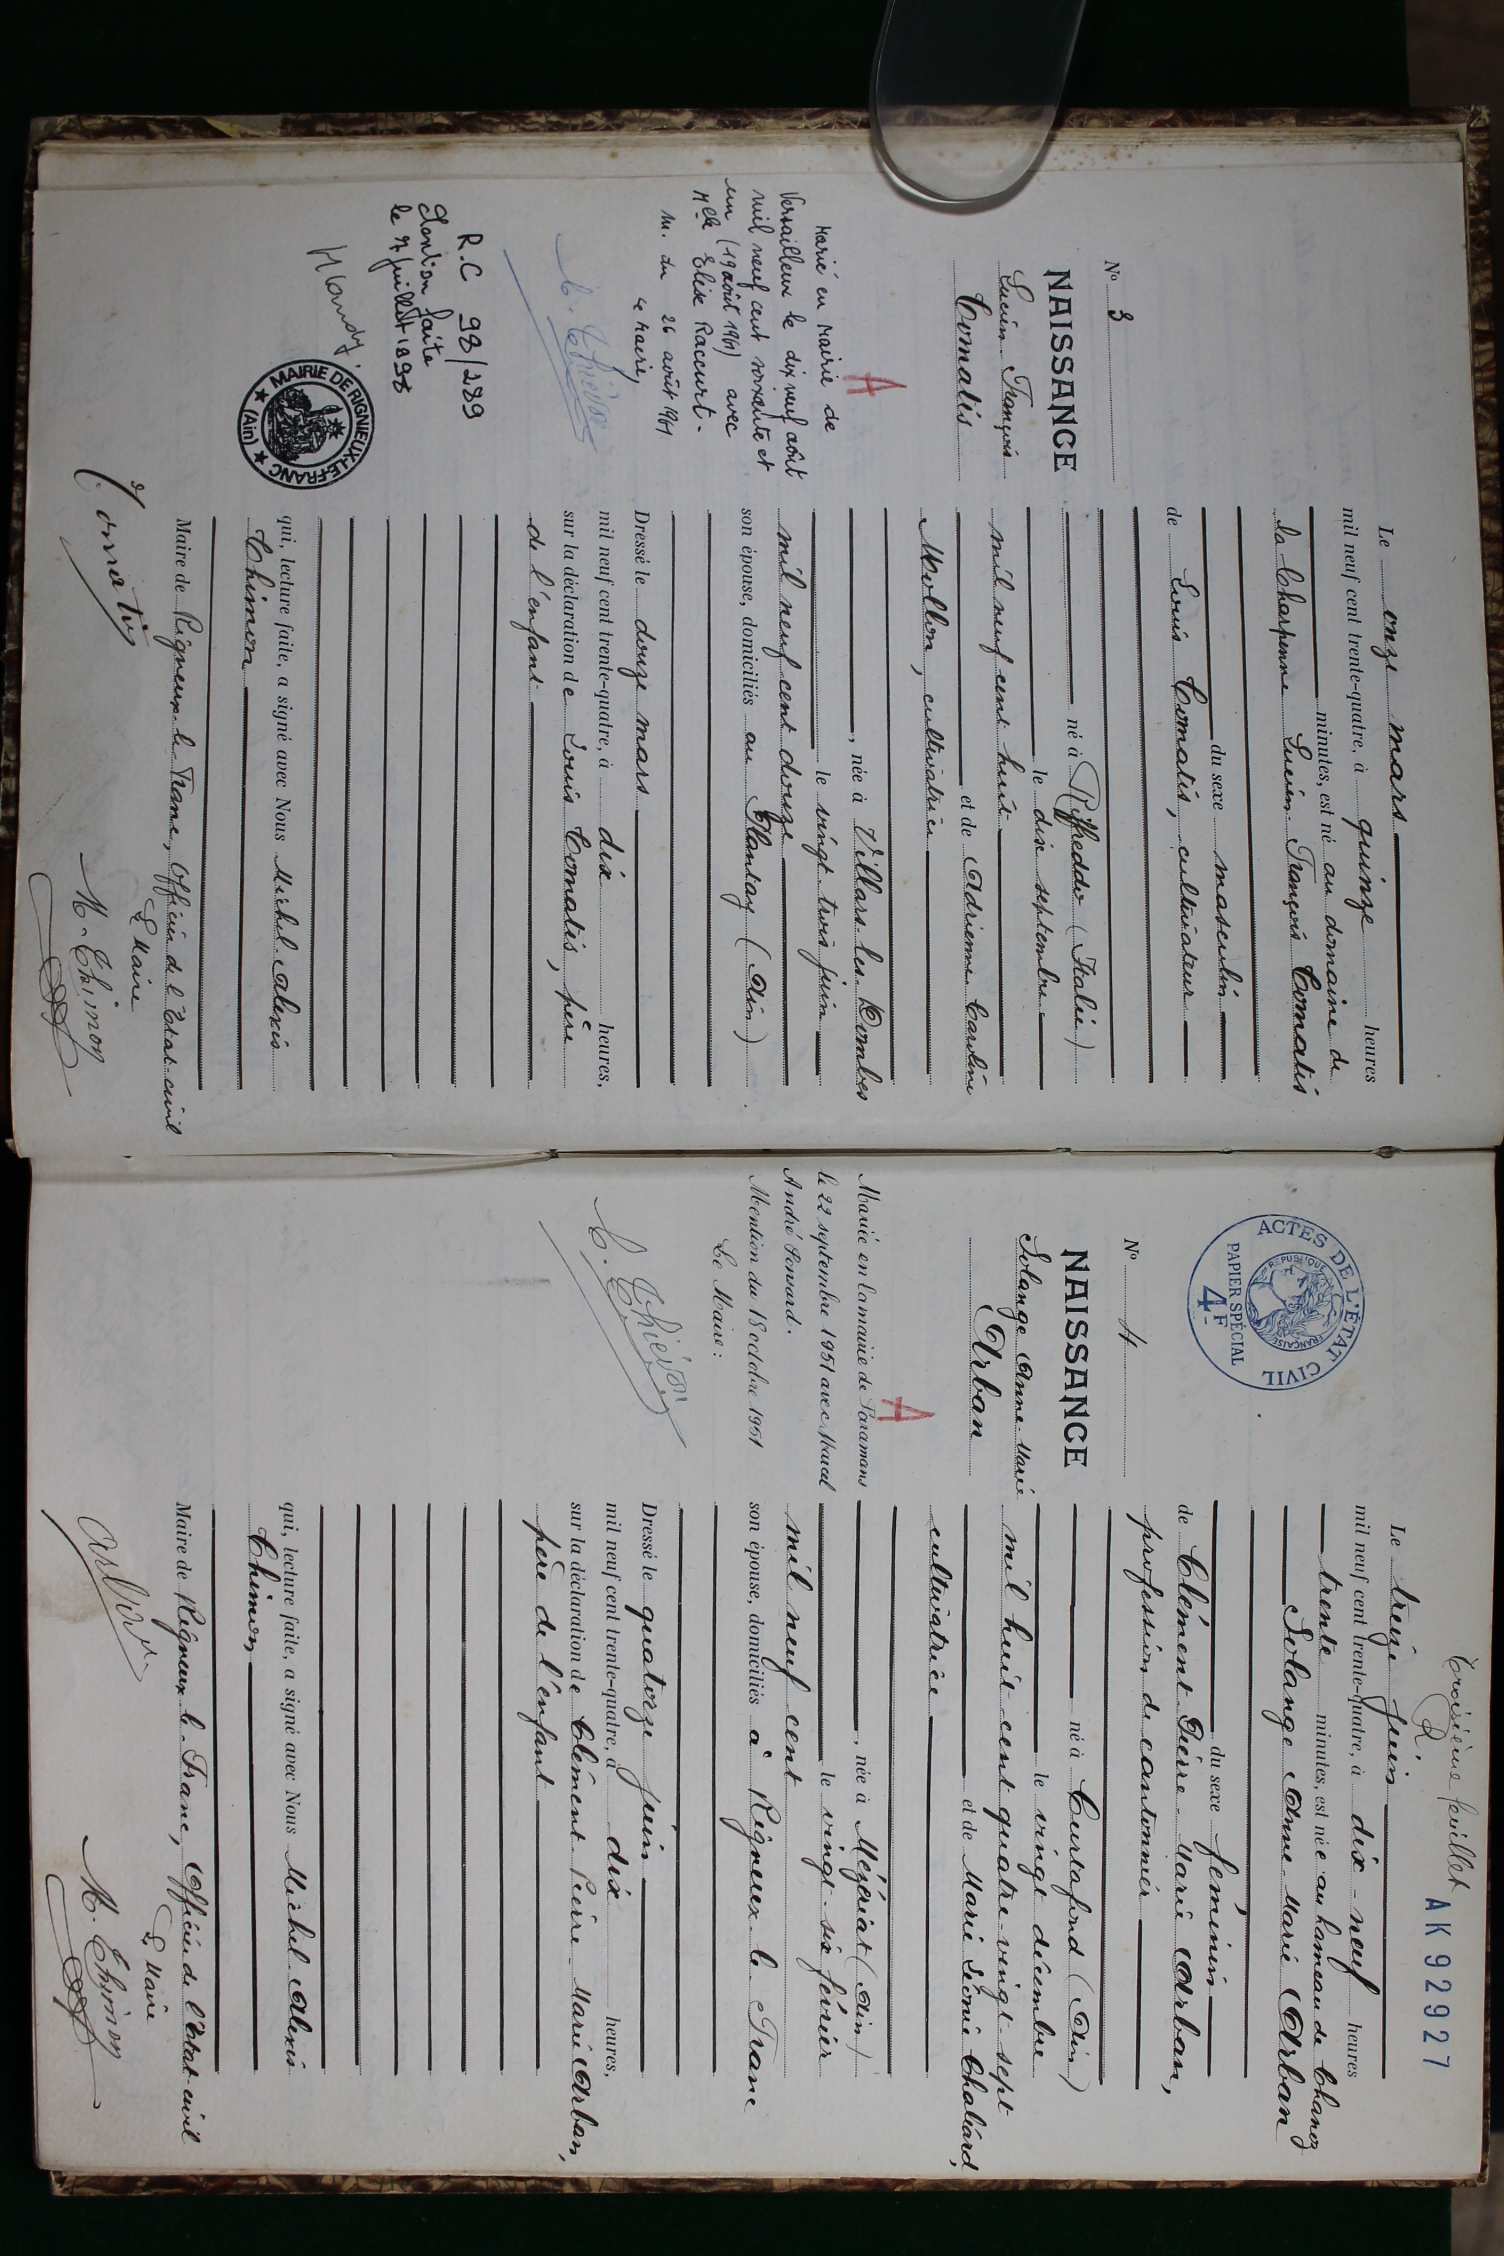 N° 3
NAISSANCE
Lucien François
Comatis
A
Marié en Mairie de
Versailleux le dix neuf août
mil neuf cent soixante et
un (19 août 1961) avec
Melle Elise Raccurt.
M. du 26 août 1961
Le Maire,
R.C 98/289
Mention faite
le 7 juillet 1998
MAIRIE DE RIGNIEUX-LE-FRANC
(Ain)
Le onze mars
mil neuf cent trente-quatre, à quinze heures
minutes, est né au domaine de
la Charpenne Lucien François Comatis
du sexe masculin
de Louis Comatis, cultivateur
né à Riffreddo (Italie)
le dix septembre
mil neuf cent huit
et de Adrienne Caroline
Mollon, cultivatrice
, née à Villars les Dombes
le vingt trois juin
mil neuf cent douze
son épouse, domiciliés au Plantay (Ain)
Dressé le douze mars
mil neuf cent trente-quatre, à dix heures,
sur la déclaration de Louis Comatis, père
de l'enfant
qui, lecture faite, a signé avec Nous Michel Alexis
Thimon
Maire de Rigneux-le-Franc, Officier de l'Etat-civil
Le Maire
M. Thimon
Troisième feuillet
R.
AK92927
ACTES DE L'ÉTAT CIVIL
RÉPUBLIQUE FRANÇAISE
PAPIER SPÉCIAL
4 F
N° 4
NAISSANCE
Solange Anne-Marie
Arban
A
Mariée en la mairie de Faramans
le 22 septembre 1951 avec Marcel
André
Mention du 18 octobre 1951
Le Maire :
Le treize juin
mil neuf cent trente-quatre, à dix-neuf heures
trente minutes, est née au hameau de Chanoz
Solange Anne-Marie Arban
du sexe féminin
de Clément-Pierre-Marie Arban,
profession de cantonnier
né à Curtafond (Ain)
le vingt décembre
mil huit cent quatre-vingt-sept
et de Marie Léonie Chaliard,
cultivatrice
, née à Mézériat (Ain)
le vingt-six février
mil neuf cent
son épouse, domiciliés à Rigneux-le-Franc
Dressé le quatorze juin
mil neuf cent trente-quatre, à dix heures,
sur la déclaration de Clément-Pierre-Marie Arban,
père de l'enfant
qui, lecture faite, a signé avec Nous Michel Alexis
Thimon
Maire de Rigneux-le-Franc, Officier de l'Etat-civil
Le Maire
Arban
M. Thimon